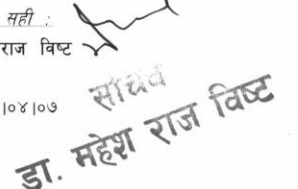 सही :
राज विष्ट
|०४|०७
सचिव
डा. महेश राज विष्ट